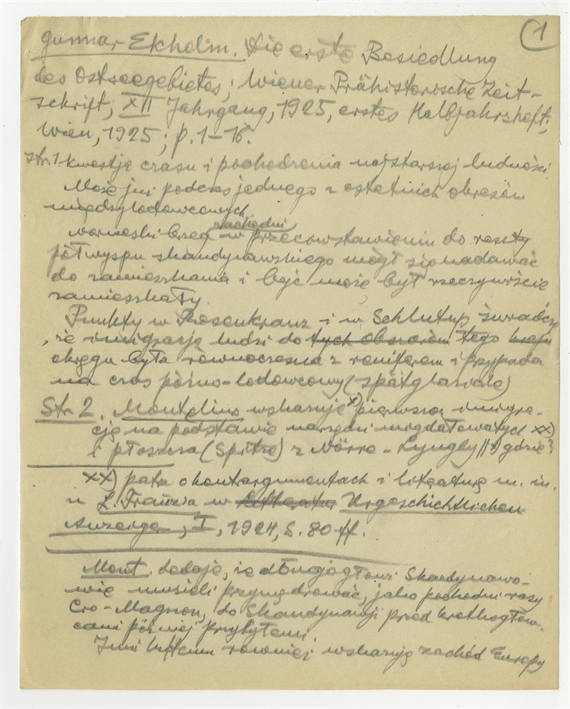 1
Gunnar Ekholm. Die erste Besiedlung
des Ostseegebietes; Wiener Prähistorische Zeit-
schrift, XII Jahrgang, 1925, erstes Halbjahrsheft;
Wien, 1925; p. 1-16.
Str. 1 Kwestja czasu i pochodzenia najstarszej ludności.
Może już podczas jednego z ostatnich okresów
międzylodowcowych
norweski brzeg zachodni w przeciwstawieniu do reszty
półwyspu skandynawskiego mógł się nadawać
do zamieszkania i być może był rzeczywiście
zamieszkały.
Punkty w Rosenkranz i w Schlutup świadczą
, że imigracja ludzi do tych obszarów tego kraju
okręgu była równoczesna z reniferem i przypada
na czas późno-lodowcowy (spätglaziale)
Str. 2. Montelius wskazuje x) pierwszą imigra-
cję na podstawie narzędzi migdałowatych xx)
i płoszcza (Spitze) z Nörre-Lyngby /1) gdzie?
xx) patrz o kontrargumentach i literaturę m. in.
u L. Franza w Urgeschichtlichen
Anzeiger, I, 1924, S. 80 ff.
Mont. dodaje, że długogłowi Skandynawo-
wie musieli przywędrować, jako pochodni rasy
Cro-Magnon, do Skandynawji przed krótkogłow-
cami później przybyłemi.
Inni również wskazują zachód Europy